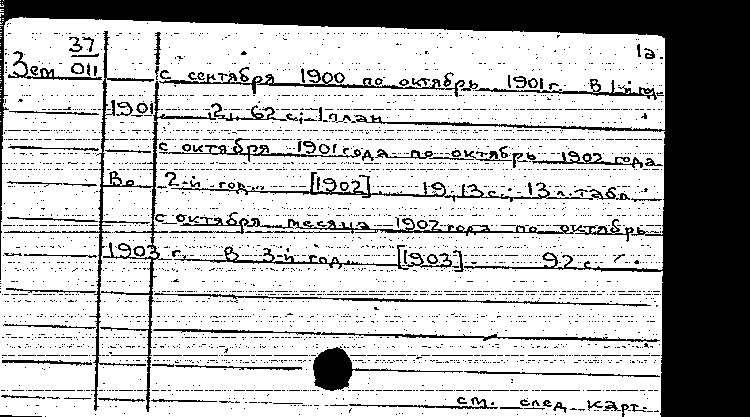 37 1а.
Зем 011
с сентября 1900 по октябрь 1901 г. В 1-й год
1901. 2, 62 с.; 1 план
с октября 1901 года по октябрь 1902 года
Во 2-й год. [1902] 19, 13 с.; 13 л. табл.
с октября месяца 1902 года по октябрь
1903 г. В 3-й год. [1903]. 92 с.
см. след. карт.